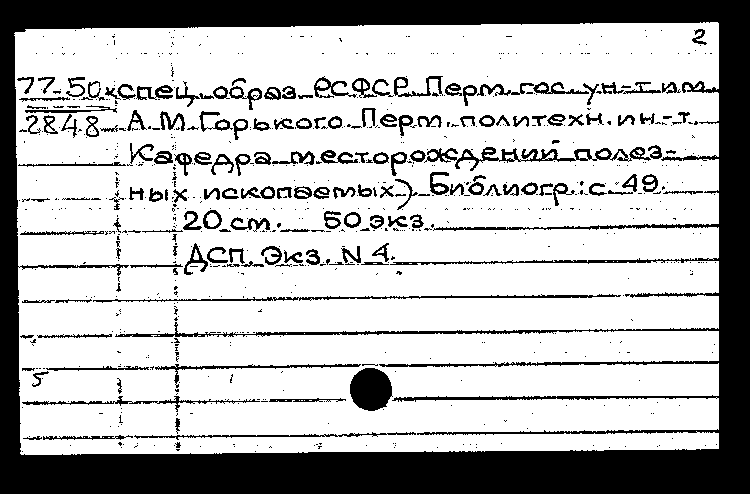 2
77-50к спец. образ. РСФСР. Перм. гос. ун-т им.
2848 А.М. Горького. Перм. политехн. ин-т.
Кафедра месторождений полез-
ных ископаемых). Библиогр.: с. 49.
20 см. 50 экз.
ДСП. Экз. N 4.
5